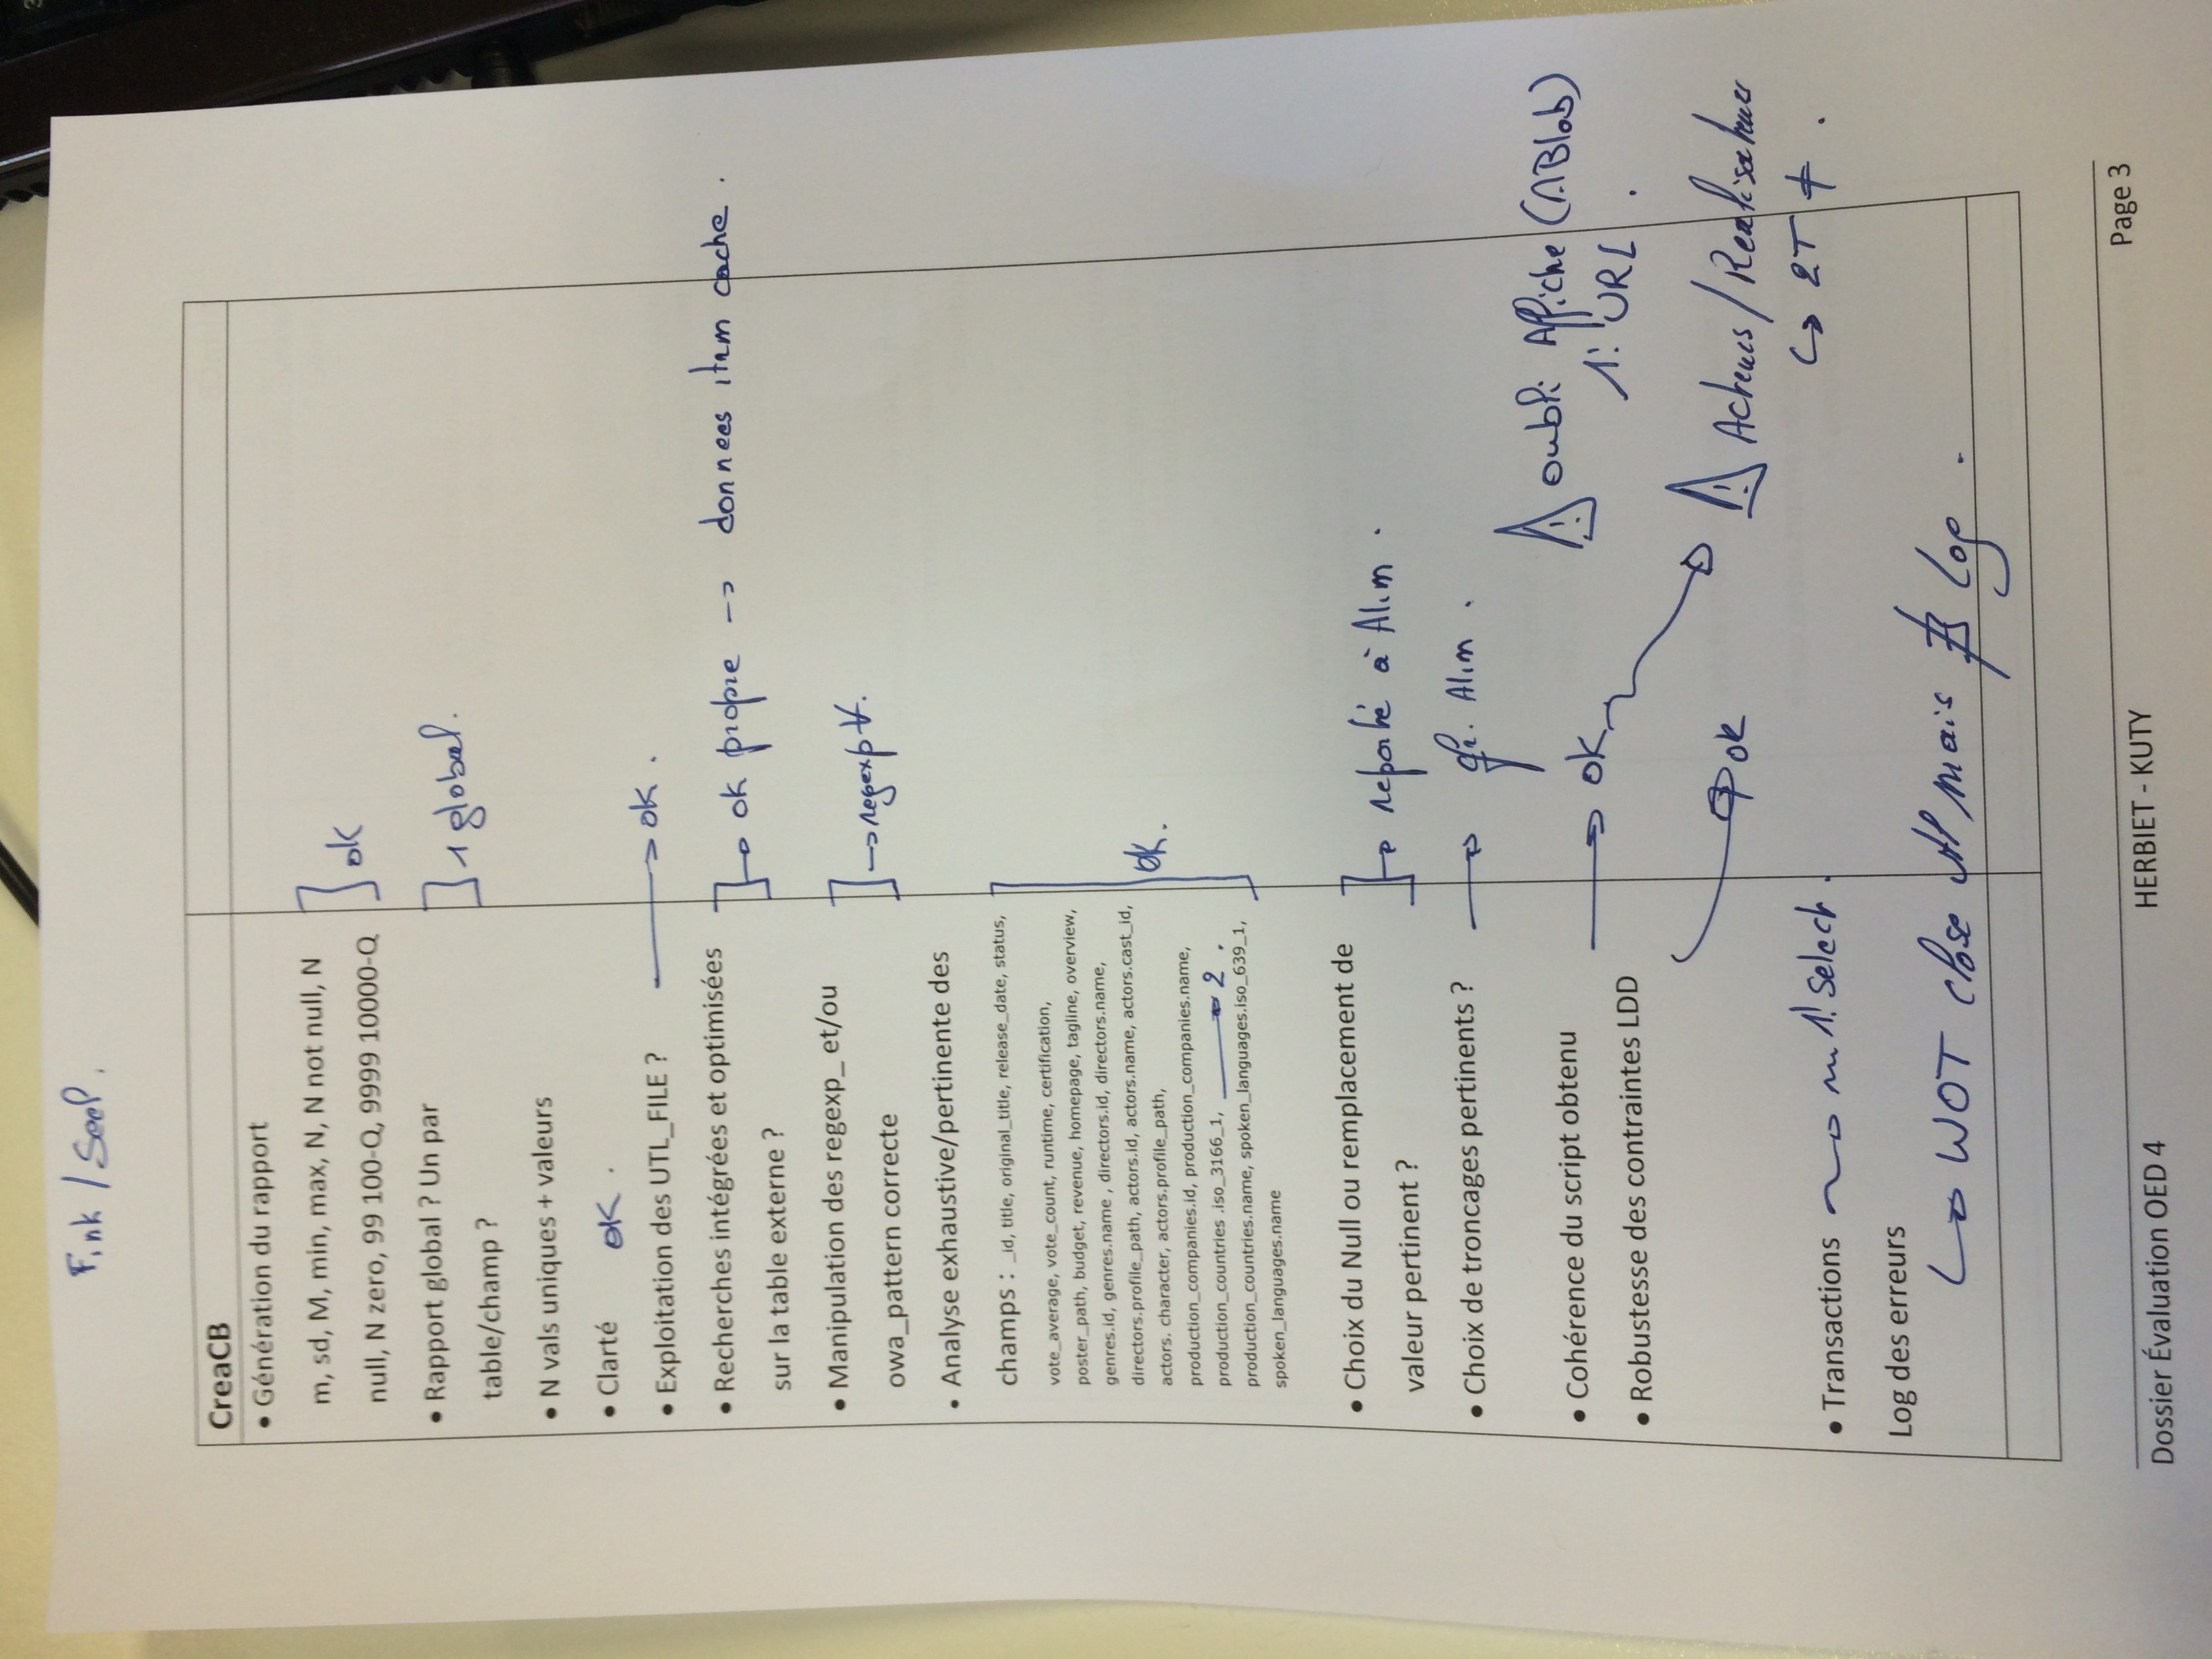 Fink / Seel.
CreaCB
• Génération du rapport
m, sd, M, min, max, N, N not null, N
null, N zero, 99 100-Q, 9999 10000-Q
ok
• Rapport global ? Un par
table/champ ?
1 global.
• N vals uniques + valeurs
• Clarté OK.
• Exploitation des UTL_FILE ? → ok.
• Recherches intégrées et optimisées
sur la table externe ?
→ ok propre → donnees item cache.
• Manipulation des regexp_ et/ou
owa_pattern correcte
→ regexp ∀.
• Analyse exhaustive/pertinente des
champs : _id, title, original_title, release_date, status,
vote_average, vote_count, runtime, certification,
poster_path, budget, revenue, homepage, tagline, overview,
genres.id, genres.name , directors.id, directors.name,
directors.profile_path, actors.id, actors.name, actors.cast_id,
actors. character, actors.profile_path,
production_companies.id, production_companies.name,
production_countries .iso_3166_1, → 2.
production_countries.name, spoken_languages.iso_639_1,
spoken_languages.name
ok.
• Choix du Null ou remplacement de
valeur pertinent ?
→ reporté à Alim.
• Choix de troncages pertinents ? → Alim.
• Cohérence du script obtenu → ok
⚠ oubli Affiche (1 Blob)
1! URL.
• Robustesse des contraintes LDD → ok
⚠ Acteurs / Realisateurs
↳ 2T ≠.
• Transactions → 1! Select.
Log des erreurs
↳ WOT close mais ∄ Log.
Dossier Évaluation OED 4
HERBIET - KUTY
Page 3